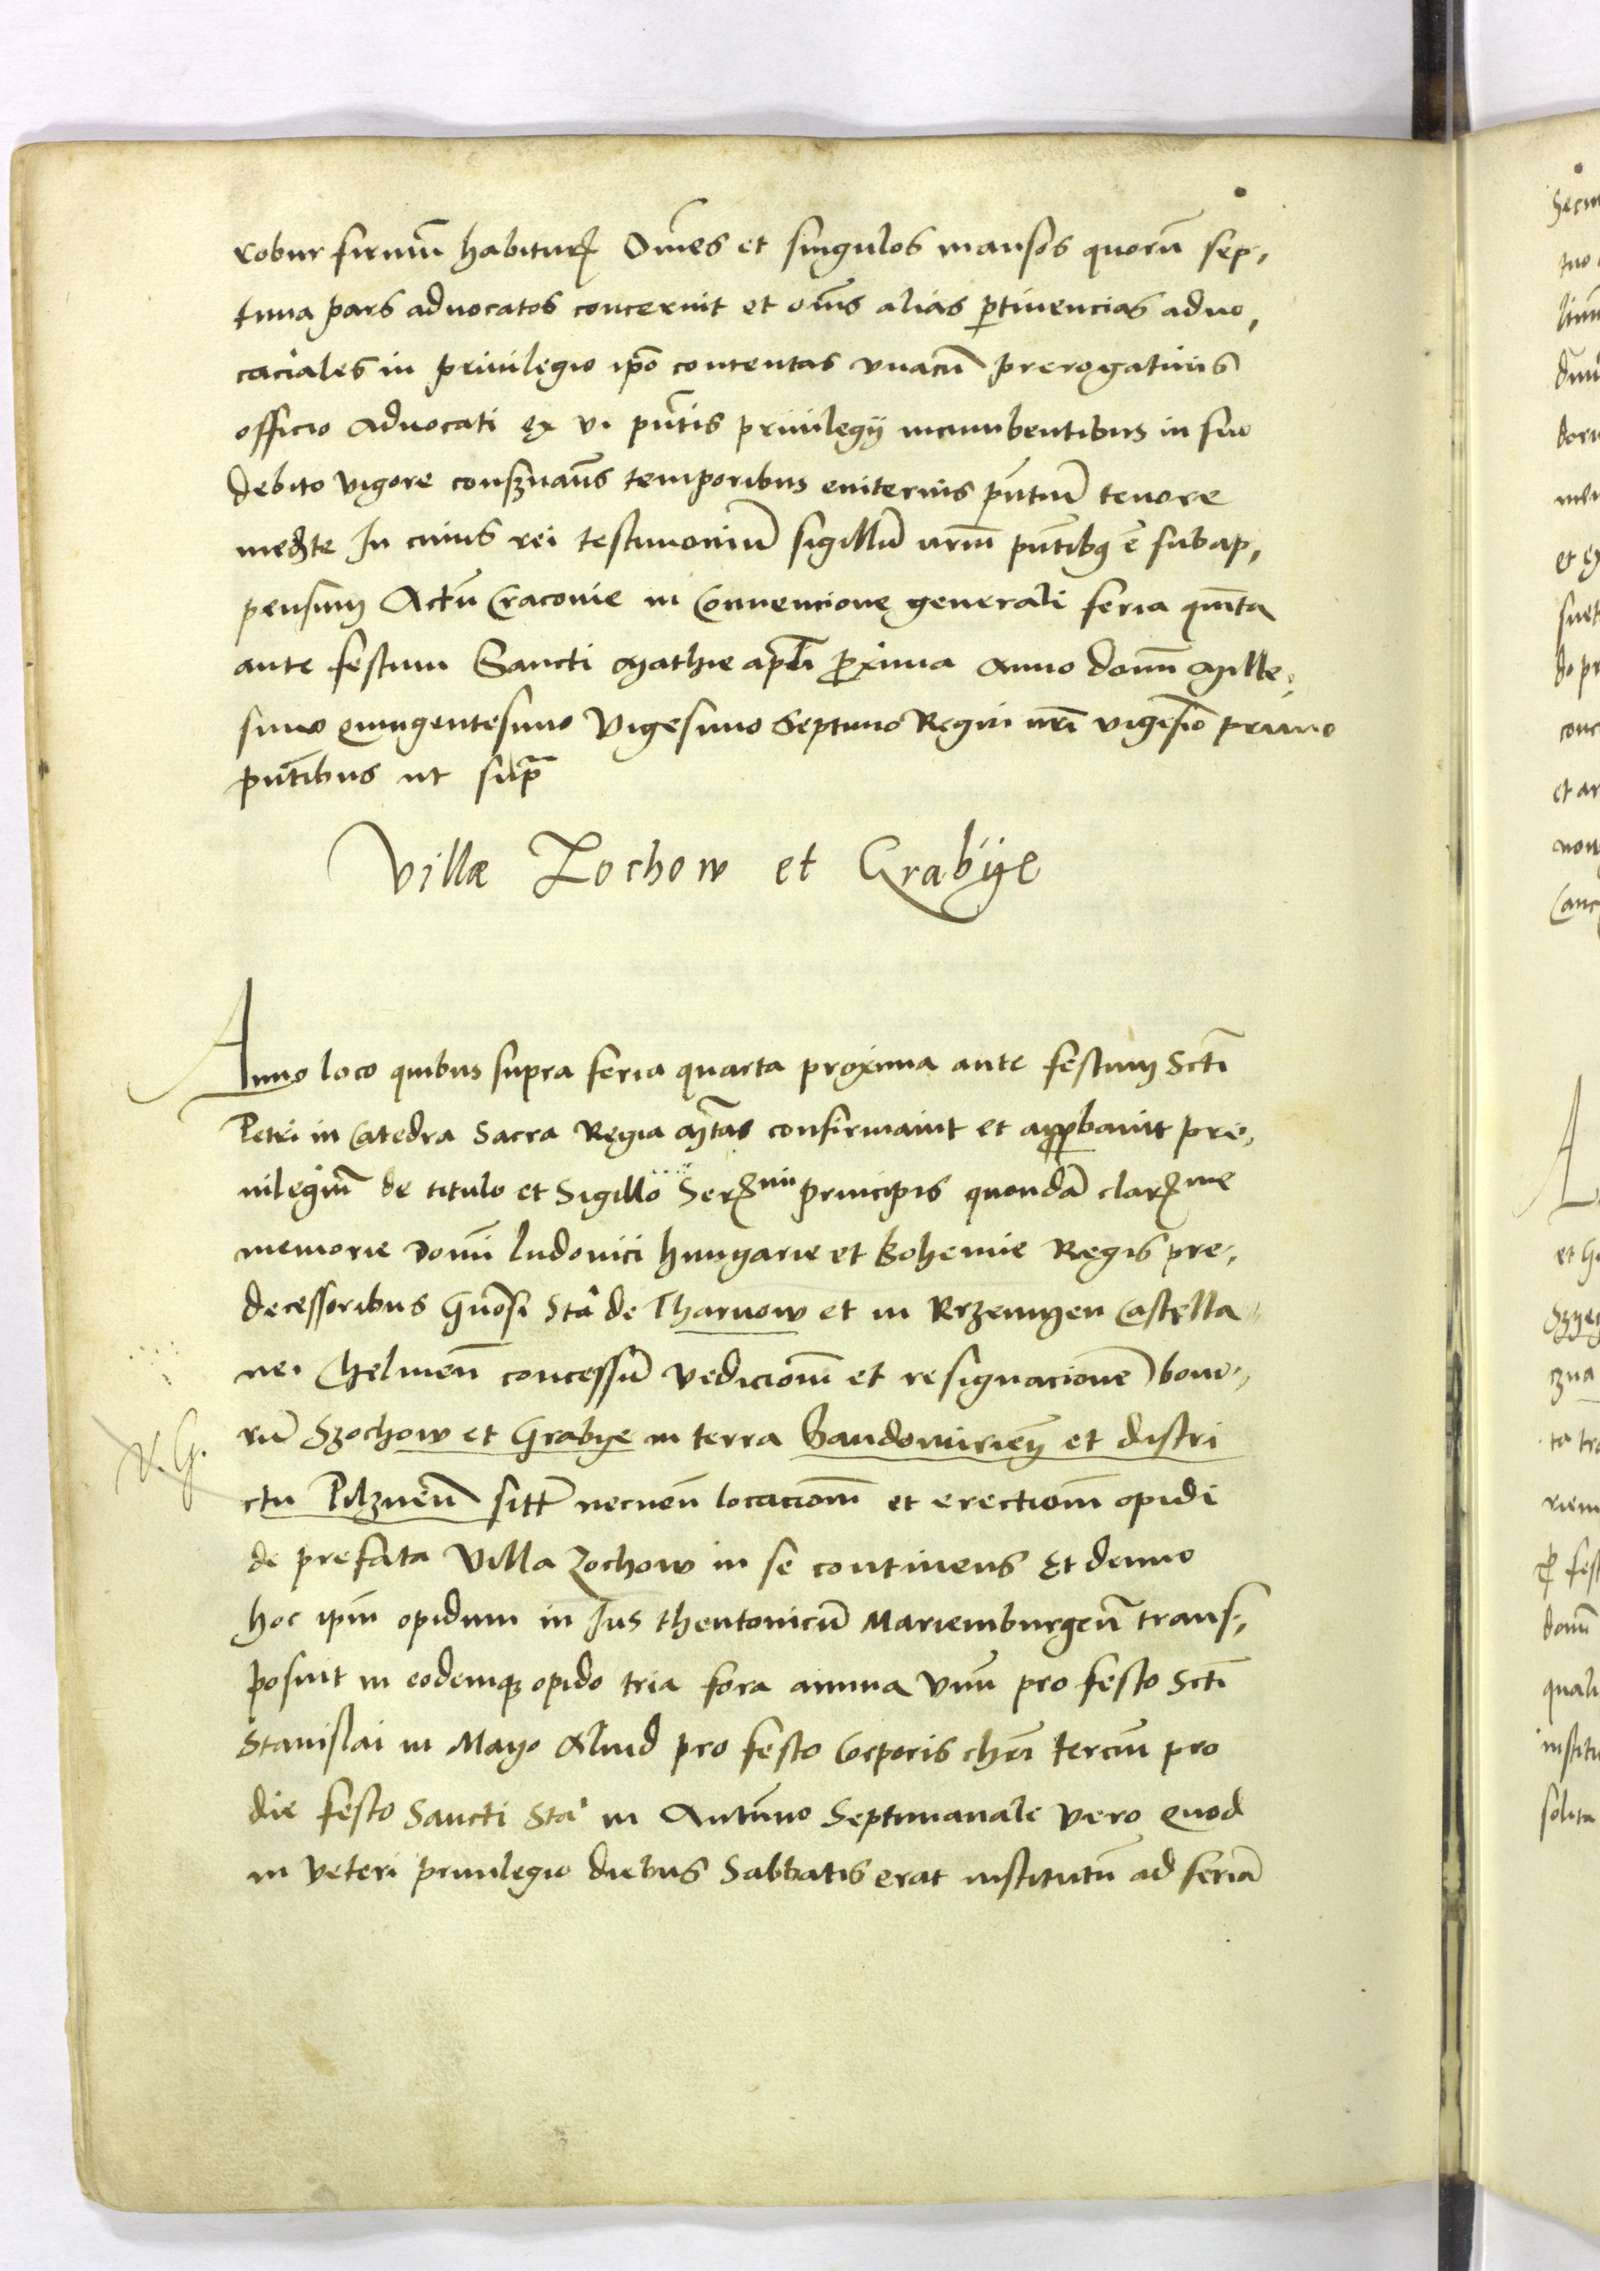 robur firmũ habiturꝭ Om̃es et singulos mansos quorũ sep,
tima pars aduocatos concernit et om̃s alias ꝑtinencias aduo,
caciales in priuilegio ip̃o contentas vnacũ prerogatiuis
officio Aduocati ex vi pñtis priuilegij incumbentibus in suo
debito vigore conseruañs temporibus euiternis pñtiũ tenore
mediãte In cuius rei testimoniũ sigillũ nr̃m pñtibꝫ ẽ subap,
pensum Actũ Cracouie in Conuencione generali feria quĩta
ante festum Sancti Mathie apl̃i ꝓxima Anno domĩ Mille,
simo quingentesimo Vigesimo Septimo Regni nr̃i vigesiõ primo
pñtibus ut supͣ
Villæ Zochow et Grabije
Anno loco quibus supra feria quarta proxima ante festum Scti̅
Petri in Catedra Sacra Regia Mtãs confirmauit et apꝓbauit pri,
uilegiũ de titulo et Sigillo Serꝭmi principis quondã clarꝭme
memorie Domĩ Ludouici hungarie et Bohemie Regis pre,
decessoribus Gñosi Stã de Tharnow et in Rzemyen Castella
nei Chelmeñ concessũ vẽdicionẽ et resignacionẽ bono,
rũ Szochow et Grabye in terra Sandomirieñ et distri
ctu Pilzneñ sitt̃ necneñ locacionẽ et erectionẽ opidi
de prefata Villa Zochow in se continens Et demo
hoc ip̃m opidum in Jus theutonicũ Mariemburgeñ trans,
posuit in eodemqꝫ opido tria fora annua vnũ pro festo Scti̅
Stanislai in Mayo Aliud pro festo Corporis chr̃i terciũ pro
die festo Sancti Stã in Autũno Septimanale vero quod
in veteri priuilegio diebus Sabbatis erat institutũ ad feriã
N. G.